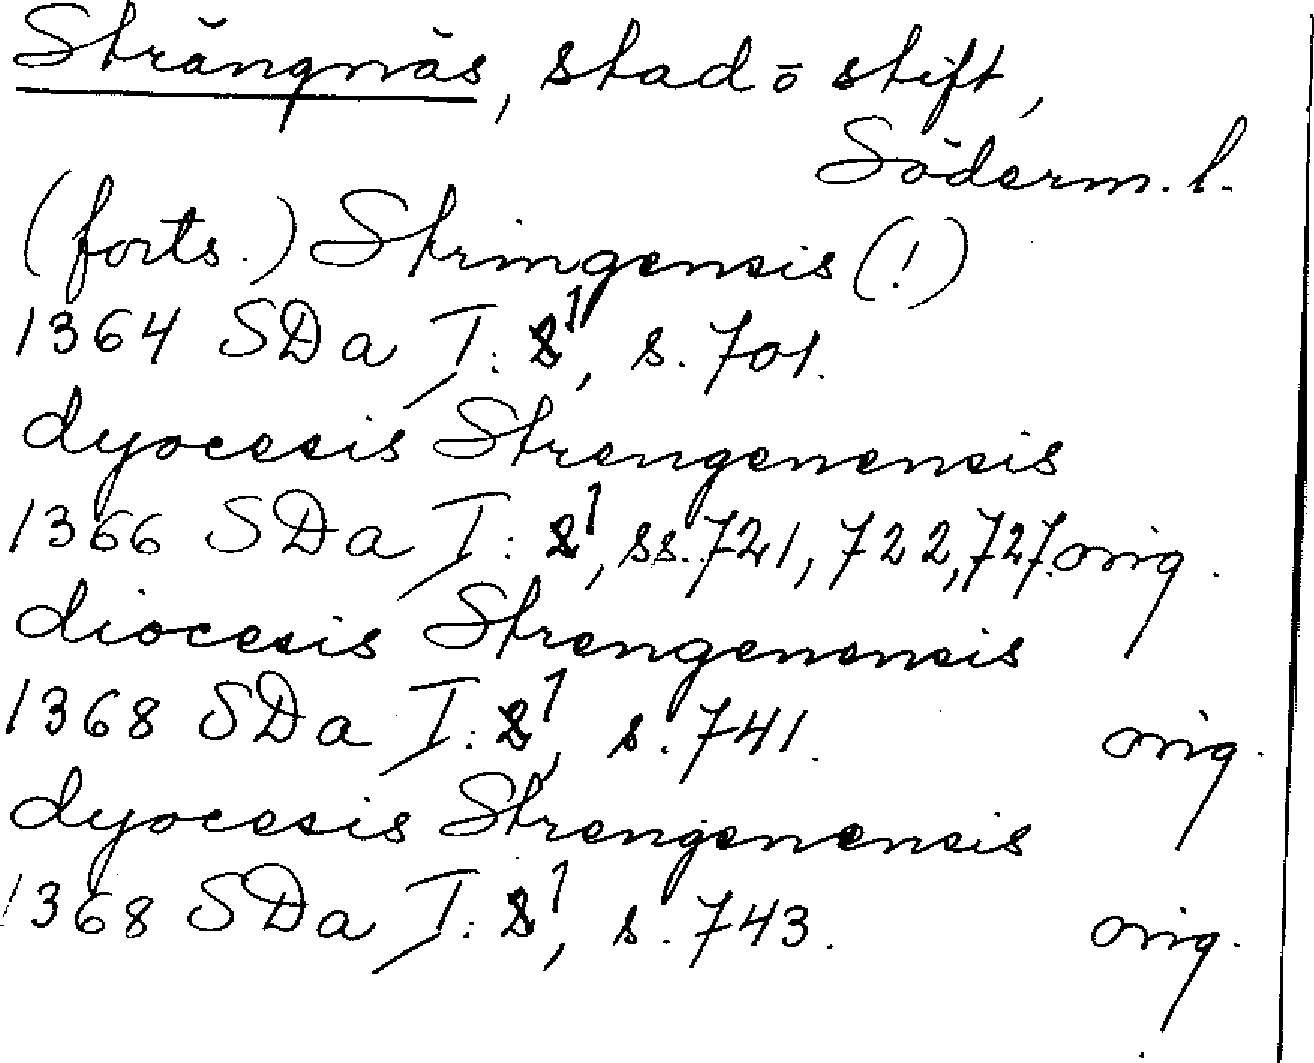 Strängnäs, stad o stift,
Söderm. l.
(forts.) Stringensis (!)
1364 SDa I: 1, s. 701.
dyocesis Strengenensis
1366 SDa I: 1, ss. 721, 722, 727. orig.
diocesis Strengenensis
1368 SDa I: 1, s. 741. orig.
dyocesis Strengenensis
1368 SDa I: 1, s. 743. orig.